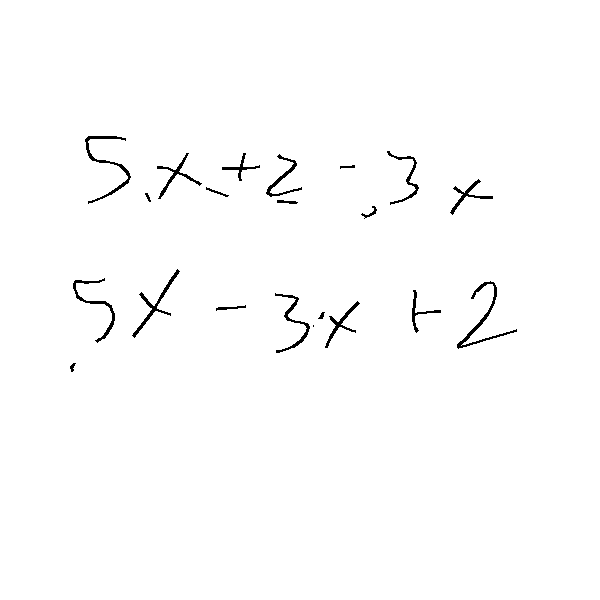 5x+2-3x
5x-3x+2